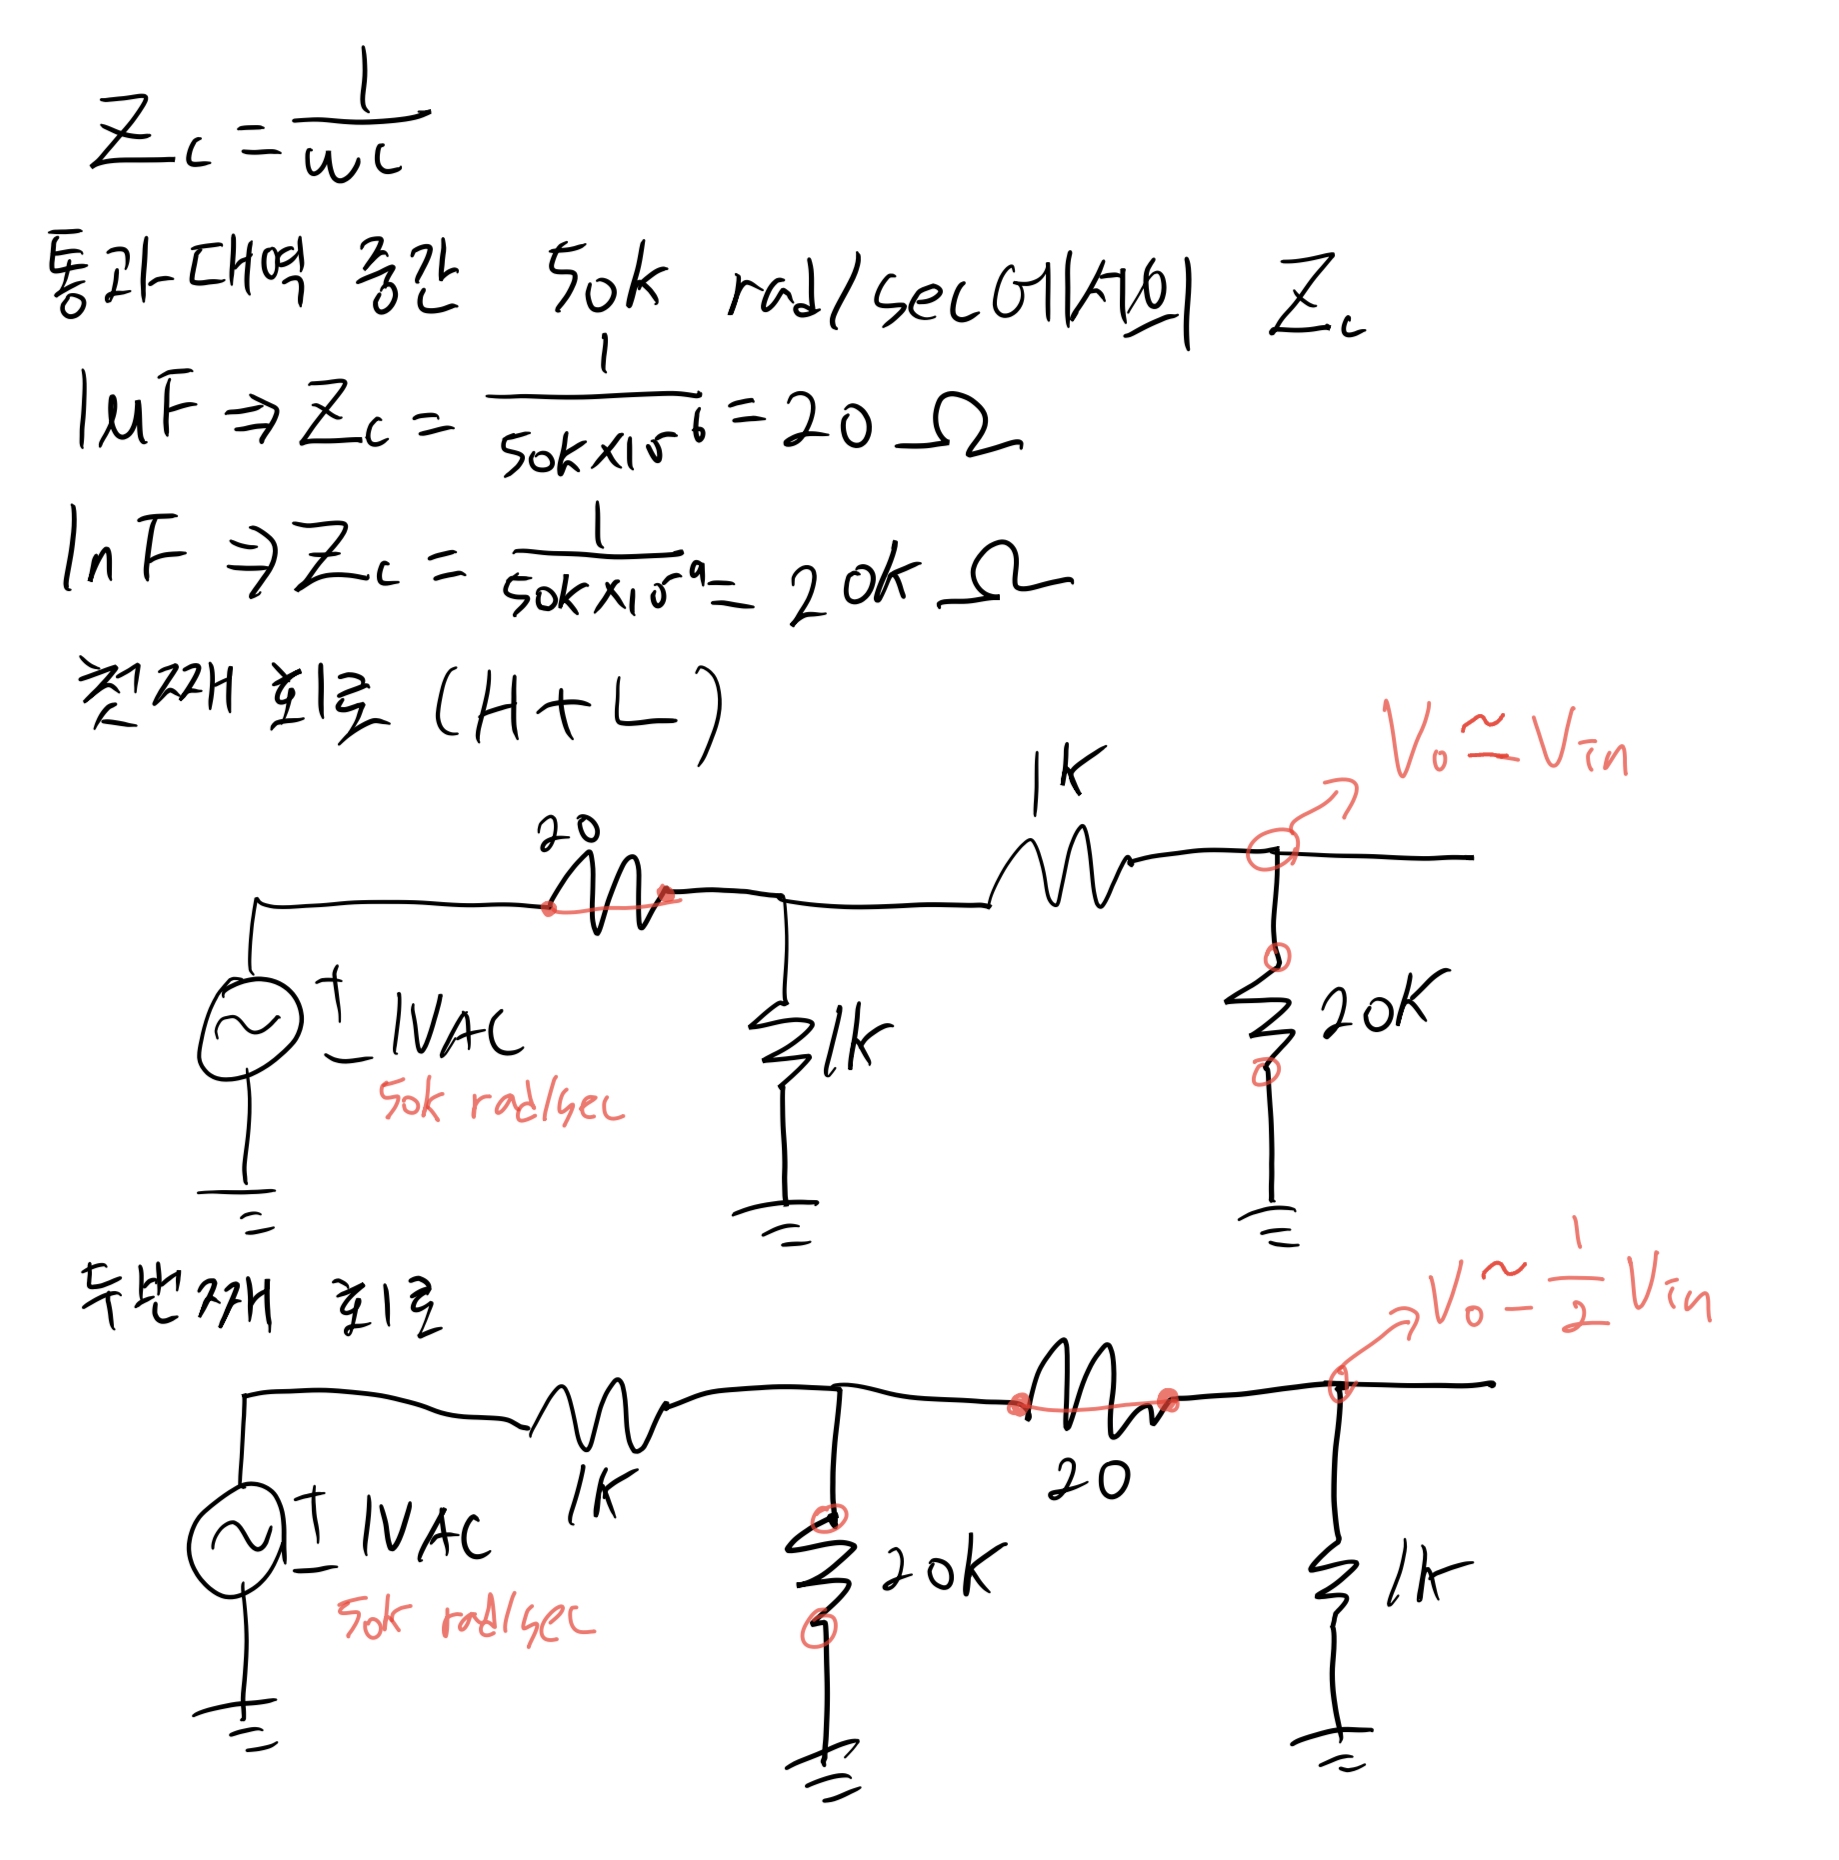 Zc = 1/wc
통과대역 중간 50k rad/sec에서의 Zc
1μF ⇒ Zc = 1/(50k×10^-6) = 20Ω
1nF ⇒ Zc = 1/(50k×10^-9) = 20kΩ
첫째 회로 (H+L)
Vo ≃ Vin
1K
20
+
- 1VAC
50k rad/sec
1k
20K
두번째 회로
Vo ≃ 1/2 Vin
1K
20
+
- 1VAC
50k rad/sec
20K
1k